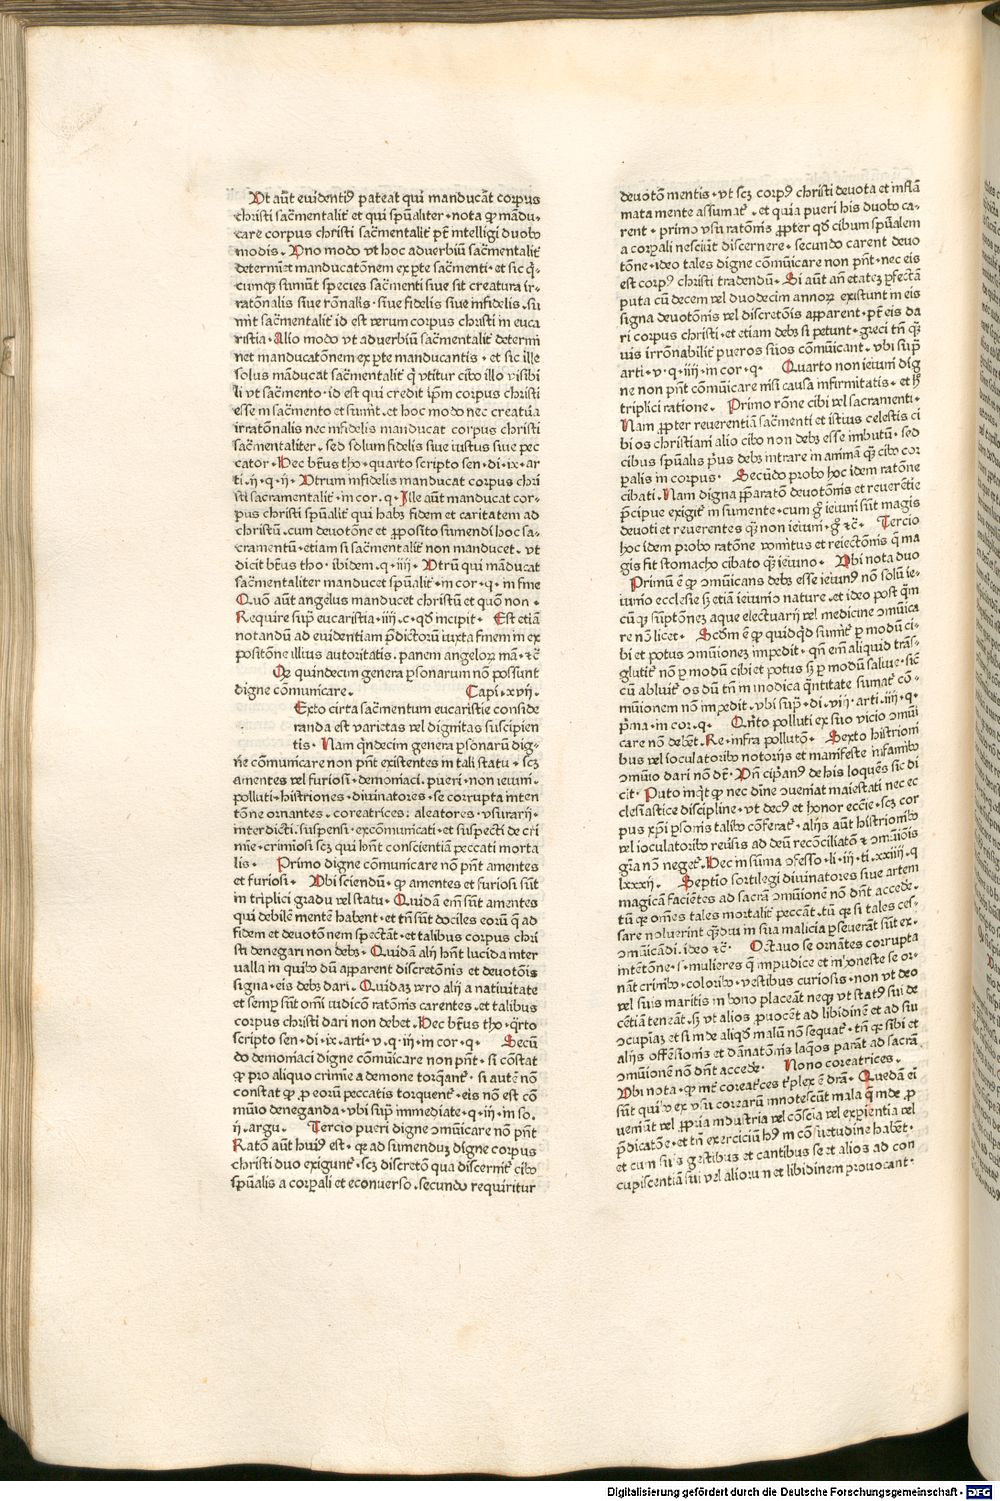 Vt aūt euidentiꝰ pateat qui manducāt corpus
christi sac̄mentalit̄ et qui spūaliter · nota ꝙ mādu-
care corpus christi sac̄mentalit̄ pt̄ intelligi duobꝰ
modis · Vno modo vt hoc aduerbiū sac̄mentalit̄
determīet manducatōnem ex ꝑte sac̄menti · et sic q̄-
cumqꝫ sumūt species sac̄menti siue sit creatura ir-
ratōnalis siue rōnalis · siue fidelis siue infidelis . su
mūt sac̄mentalit̄ id est verum corpus christi in euca
ristia · Alio modo vt aduerbiū sac̄mentalit̄ determi
net manducatōnem ex ꝑte manducantis · et sic ille
solus māducat sac̄mentalit̄ q̄ vtitur cibo illo visibi
li vt sac̄mento · id est qui credit ipm̄ corpus christi
esse in sac̄mento et sumit̄ . et hoc modo nec creatura
irratōnalis nec infidelis manducat corpus christi
sac̄mentaliter . sed solum fidelis siue iustus siue pec
cator · Hec bt̄us tho · quarto scripto sen · di · ix · ar
ti · ij · q · ij · Vtrum infidelis manducat corpus chri
sti sacramentalit̄ · in cor . q · Ille aūt manducat cor-
pus christi spūalit̄ qui habꝫ fidem et caritatem ad
christū . cum deuotōne et ꝓposito sumendi hoc sa-
cramentū · etiam si sac̄mentalit̄ non manducet . vt
dicit bt̄us tho · ibidem . q · iiij · Vtrū qui māducat
sac̄mentaliter manducet spūalit̄ · in cor · q · in fine
Quō aūt angelus manducet christū et quō non ·
Require sup̄ eucaristia · iiij . c · qd̄ incipit · Est etiā
notandū ad euidentiam p̄dictorū iuxta finem in ex
positōne illius autoritatis . panem angeloꝝ mā · ⁊c̄
Qꝫ quindecim genera ꝑsonarum nō possunt
digne cōmunicare · Capi · xvij ·
Exto circa sac̄mentum eucaristie conside
randa est varietas vel dignitas suscipien
tis · Nam q̄ndecim genera ꝑsonarū dig-
ne cōmunicare non pn̄t existentes in tali statu · scꝫ
amentes vel furiosi · demoniaci . pueri · non ieiuni .
polluti · histriones · diuinatores · se corrupta inten
tōne ornantes . coreatrices : aleatores · vsurarij ·
interdicti . suspensi · excōmunicati · et suspecti de cri
mīe · crimīosi scꝫ qui hn̄t conscientiā peccati morta
lis · Primo digne cōmunicare nō pn̄t amentes
et furiosi · Vbi sciendū · ꝙ amentes et furiosi sūt
in triplici gradu vel statu · Quidā em̄ sūt amentes
qui debilē mentē habent · et tn̄ sūt dociles eorū q̄ ad
fidem et deuotōnem spectāt · et talibus corpus chri
sti denegari non debꝫ · Quidā alij hn̄t lucida inter
ualla in quibꝰ dū apparent discretōnis et deuotōis
signa · eis debꝫ dari . Quidaꝫ vero alij a natiuitate
et semꝑ sūt om̄i iudicō ratōnis carentes . et talibus
corpus christi dari non debet . Hec bt̄us tho · q̄rto
scripto sen · di · ix · arti · v . q · iij · in cor · q · Secū
do demoniaci digne cōmūicare non pn̄t · si cōstat
ꝙ pro aliquo crimīe a demone torquant̄ · si autē nō
constat ꝙ ꝓ eorū peccatis torquent̄ · eis nō est cō
mūio deneganda · vbi sup̄ immediate · q · iij · in so .
ij . argu . Tercio pueri digne ɔmūicare nō pn̄t
Ratō aūt huiꝰ est · qꝫ ad sumenduꝫ digne corpus
christi duo exigunt̄ · scꝫ discretō qua discernit̄ cibꝰ
spūalis a corꝑali et econuerso . secundo requiritur
deuotō mentis · vt scꝫ corpꝰ christi deuota et inflā
mata mente assumat̄ · et quia pueri his duobꝰ ca-
rent · primo vsu ratōnis ꝓpter qd̄ cibum spūalem
a corꝑali nesciūt discernere · secundo carent deuo
tōne · ideo tales digne cōmūicare non pn̄t · nec eis
est corpꝰ christi tradendū · Si aūt an̄ etateꝫ ꝑfectā
puta cū decem vel duodecim annoꝝ existunt in eis
signa deuotōnis vel discretōis apparent · pt̄ eis da
ri corpus christi · et etiam debꝫ si petunt · greci tn̄ qꝫ
uis irrōnabilit̄ pueros suos cōmūicant . vbi sup̄
arti · v · q · iiij · in cor · q · Quarto non ieiuni dig
ne non pn̄t cōmūicare nisi causa infirmitatis · et hꝫ
triplici ratione · Primo rōne cibi vel sacramenti ·
Nam ꝓpter reuerentiā sac̄menti et istius celestis ci
bi os christiani alio cibo non debꝫ esse imbutū · sed
cibus spūalis pⁱus debꝫ intrare in animā qꝫ cibꝰ cor
ꝑalis in corpus · Secūdo probo hoc idem ratōne
cibati . Nam digna p̄paratō deuotōnis et reuerētie
p̄cipue exigit̄ in sumente · cum gͦ ieiuni sūt magis
deuoti et reuerentes qꝫ non ieiuni · gͦ ⁊c̄ · Tercio
hoc idem probo ratōne vomitus et reiectōnis q̄ ma
gis fit stomacho cibato qꝫ ieiuno · Vbi nota duo
Primū ē ꝙ ɔmūicans debꝫ esse ieiunꝰ nō solū ie-
iunio ecclesie sꝫ etiā ieiunio nature · et ideo post q̄m
cū qꝫ sūptōnez aque electuarij vel medicine ɔmūica
re nō licet · Scd̄m ē ꝙ quidqͥd sumit̄ ꝑ modū ci-
bi et potus ɔmūionez impedit · qn̄ em̄ aliquid trās-
glutit̄ nō ꝑ modū cibi et potus sꝫ ꝑ modū saliue · sic̄
cū abluit̄ os dū tn̄ in modica q̄ntitate sumat̄ cō-
mūionem nō impedit · vbi sup̄ · di · viij · arti · iiij · q ·
p̄ma · in cor · q · Qn̄to polluti ex suo vicio ɔmūi
care nō debēt . Re · infra pollutō · Sexto histrioni
bus vel ioculatoribꝰ notorijs et manifeste infamibꝰ
ɔmūio dari nō dꝫ · Vn̄ cip̄anꝰ de his loquēs sic di
cit · Puto inq̄t ꝙ nec dīne ɔueniat maiestati nec ec
clesiastice discipline · vt decꝰ et honor eccīe · scꝫ cor
pus xp̄i ꝑsonis talibꝰ cōferat̄ · alijs aūt histrionibꝰ
vel ioculatoribꝰ reuersis ad deū recōciliatō ⁊ ɔmūiōis
gr̄a nō neget̄ . Hec in sūma ɔfesso · li · iij · ti · xxiiij · q
lxxxij · Septīo sortilegi diuinatores siue artem
magicā faciētes ad sacrā ɔmūionē nō dn̄t accede ·
tū qꝫ om̄es tales mortalit̄ peccāt . tū qꝫ si tales ces-
sare noluerint qꝫdiu in sua malicia ꝑseuerāt sūt ex .
ɔmūicādi . ideo ⁊c̄ · Octauo se ornātes corrupta
intētōne · s · mulieres q̄ impudice et inhoneste se or-
nāt crinibꝰ · coloribꝰ · vestibus curiosis · non vt deo
vel suis maritis in bono placeāt neqꝫ vt statꝰ sui de
cētiā teneāt . sꝫ vt alios ꝓuocēt ad libidinē et ad sui
ɔcupiaꝫ et si inde aliqͥd malū nō sequat̄ · tn̄ qꝫ sibi et
alijs offēsiōis et dānatōis laq̄os parāt ad sacrā
ɔmūionē nō dn̄t accede · Nono coreatrices .
Vbi nota · ꝙ mr̄ coreatͥces tͥplex ē drā · Quedā ei
sūt qui vo ex vsu corearū innotescūt mala q̄ inde ꝓ
ueniūt vel ꝓpria industria vel cōscia vel exꝑientia vel
p̄dicatōe · et tn̄ exerciciū hꝰ in cōsuetudine habēt ·
et cum suis gestibus et cantibus se et alios ad con
cupiscentiā sui vel aliorum et libidinem prouocant ·
Digitalisierung gefördert durch die Deutsche Forschungsgemeinschaft - DFG